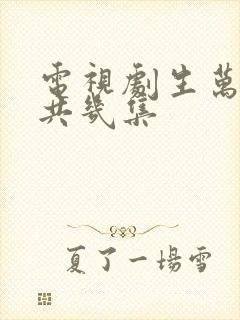 電視劇生萬
共幾集
夏了一場雪